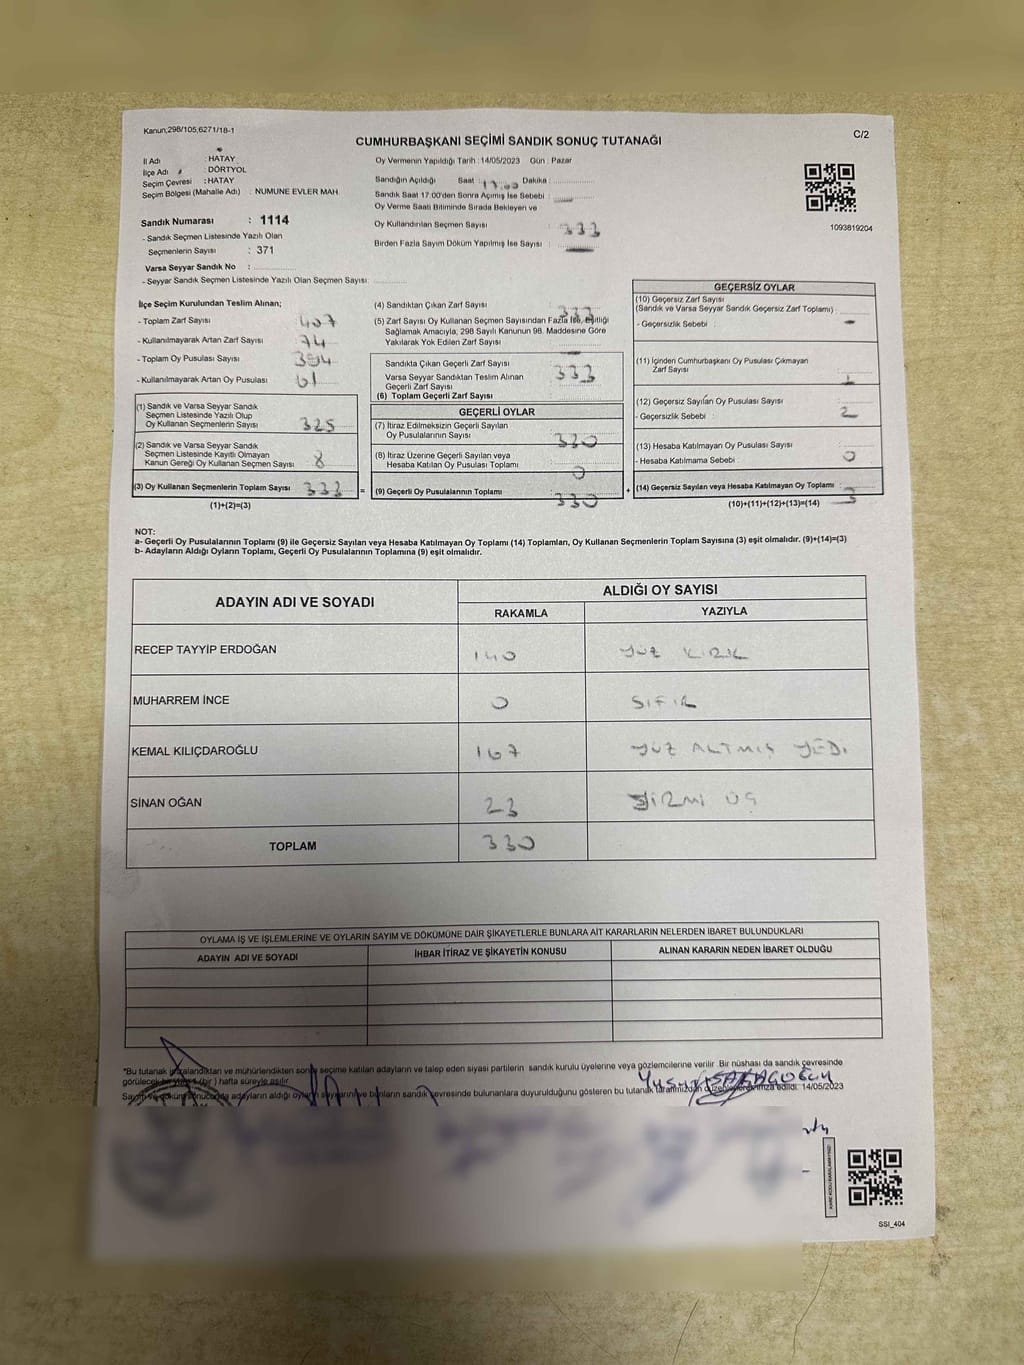 Kanun;298/105;6271/18-1
C/2
CUMHURBAŞKANI SEÇİMİ SANDIK SONUÇ TUTANAĞI
İl Adı : HATAY
İlçe Adı : DÖRTYOL
Seçim Çevresi : HATAY
Seçim Bölgesi (Mahalle Adı) : NUMUNE EVLER MAH.
Oy Vermenin Yapıldığı Tarih : 14/05/2023 Gün : Pazar
Sandığın Açıldığı Saat : 17.00 Dakika :
Sandık Saat 17:00'den Sonra Açılmış İse Sebebi :
Oy Verme Saati Bitiminde Sırada Bekleyen ve
Oy Kullandırılan Seçmen Sayısı : 333
Birden Fazla Sayım Döküm Yapılmış İse Sayısı :
1093819204
Sandık Numarası : 1114
- Sandık Seçmen Listesinde Yazılı Olan
Seçmenlerin Sayısı : 371
Varsa Seyyar Sandık No :
- Seyyar Sandık Seçmen Listesinde Yazılı Olan Seçmen Sayısı:
İlçe Seçim Kurulundan Teslim Alınan;
- Toplam Zarf Sayısı 407
- Kullanılmayarak Artan Zarf Sayısı 74
- Toplam Oy Pusulası Sayısı 394
- Kullanılmayarak Artan Oy Pusulası 61
(1) Sandık ve Varsa Seyyar Sandık
Seçmen Listesinde Yazılı Olup
Oy Kullanan Seçmenlerin Sayısı 325
(2) Sandık ve Varsa Seyyar Sandık
Seçmen Listesinde Kayıtlı Olmayan
Kanun Gereği Oy Kullanan Seçmen Sayısı 8
(3) Oy Kullanan Seçmenlerin Toplam Sayısı 333 =
(1)+(2)=(3)
(4) Sandıktan Çıkan Zarf Sayısı 333
(5) Zarf Sayısı Oy Kullanan Seçmen Sayısından Fazla İse, Eşitliği
Sağlamak Amacıyla, 298 Sayılı Kanunun 98. Maddesine Göre
Yakılarak Yok Edilen Zarf Sayısı
Sandıkta Çıkan Geçerli Zarf Sayısı
Varsa Seyyar Sandıktan Teslim Alınan
Geçerli Zarf Sayısı 333
(6) Toplam Geçerli Zarf Sayısı
GEÇERLİ OYLAR
(7) İtiraz Edilmeksizin Geçerli Sayılan
Oy Pusulalarının Sayısı 330
(8) İtiraz Üzerine Geçerli Sayılan veya
Hesaba Katılan Oy Pusulası Toplamı 0
(9) Geçerli Oy Pusulalarının Toplamı 330 +
GEÇERSİZ OYLAR
(10) Geçersiz Zarf Sayısı
(Sandık ve Varsa Seyyar Sandık Geçersiz Zarf Toplamı) :
- Geçersizlik Sebebi : -
(11) İçinden Cumhurbaşkanı Oy Pusulası Çıkmayan
Zarf Sayısı 1
(12) Geçersiz Sayılan Oy Pusulası Sayısı
- Geçersizlik Sebebi : 2
(13) Hesaba Katılmayan Oy Pusulası Sayısı
- Hesaba Katılmama Sebebi : 0
(14) Geçersiz Sayılan veya Hesaba Katılmayan Oy Toplamı 3
(10)+(11)+(12)+(13)=(14)
NOT:
a- Geçerli Oy Pusulalarının Toplamı (9) ile Geçersiz Sayılan veya Hesaba Katılmayan Oy Toplamı (14) Toplamları, Oy Kullanan Seçmenlerin Toplam Sayısına (3) eşit olmalıdır. (9)+(14)=(3)
b- Adayların Aldığı Oyların Toplamı, Geçerli Oy Pusulalarının Toplamına (9) eşit olmalıdır.
ADAYIN ADI VE SOYADI
ALDIĞI OY SAYISI
RAKAMLA YAZIYLA
RECEP TAYYİP ERDOĞAN 140 YÜZ KIRK
MUHARREM İNCE 0 SIFIR
KEMAL KILIÇDAROĞLU 167 YÜZ ALTMIŞ YEDİ
SİNAN OĞAN 23 YİRMİ ÜÇ
TOPLAM 330
OYLAMA İŞ VE İŞLEMLERİNE VE OYLARIN SAYIM VE DÖKÜMÜNE DAİR ŞİKAYETLERLE BUNLARA AİT KARARLARIN NELERDEN İBARET BULUNDUKLARI
ADAYIN ADI VE SOYADI İHBAR İTİRAZ VE ŞİKAYETİN KONUSU ALINAN KARARIN NEDEN İBARET OLDUĞU
*Bu tutanak imzalandıktan ve mühürlendikten sonra seçime katılan adayların ve talep eden siyasi partilerin sandık kurulu üyelerine veya gözlemcilerine verilir. Bir nüshası da sandık çevresinde
görülecek bir yere 1 (bir) hafta süreyle asılır.
Sayım ve döküm sonucunda adayların aldığı oyların sayılarını ve bunların sandık çevresinde bulunanlara duyurulduğunu gösteren bu tutanak tarafımızdan düzenlenerek imza edildi. 14/05/2023
SSI_404